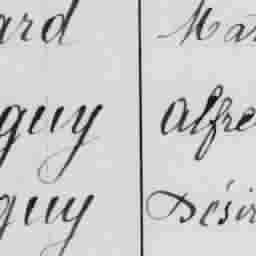 ard Mat
guy Alfre
guy Désir